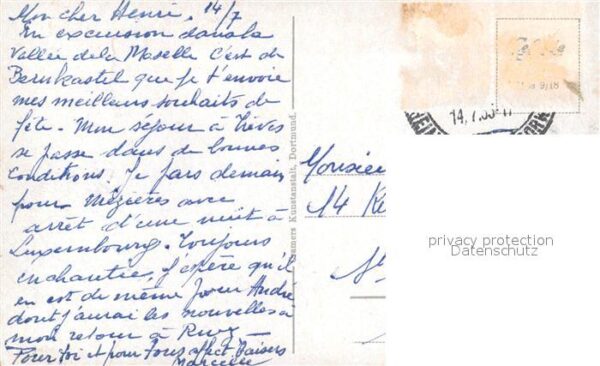 Mon cher Henri. 14/7
En excursion dans la
Vallée de la Moselle c'est de
Bernkastel que je t'envoie
mes meilleurs souhaits de
fête. Mon séjour à Trèves
se passe dans de bonnes
conditions. Je pars demain
pour Mézières avec
arrêt d'une nuit à
Luxembourg. Toujours
enchantée, j'espère qu'il
en est de même pour André
dont j'aurai les nouvelles à
mon retour à
Pour toi et pour tous affect. baisers
Marcelle
Cramers Kunstanstalt, Dortmund.
Monsieur
14
14.7.
privacy protection
Datenschutz